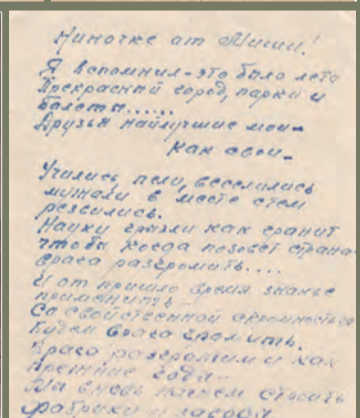 Ниночке от Миши!
Я вспомнил - это было лето
Прекрасный город, парки и
балеты......
Друзья наилучшие мои -
как свои -
Учились, пели, веселились
мужали в месте с тем
резвились.
Науки грызли как гранит
чтобы когда позовет страна
врага разгромить....
И от пришло время знанье
применить -
Со свойственной скромностью
будем врага громить.
Врага разгромим и как
прежние года -
Мы вновь начнем строить
фабрики и заводы